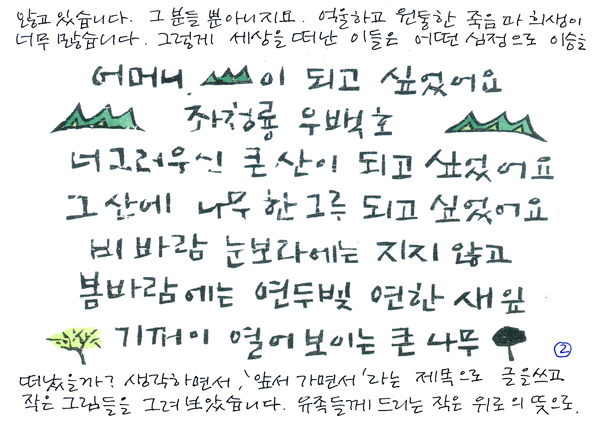 않고 있습니다. 그 분들 뿐아니지요. 억울하고 원통한 죽음과 희생이
너무 많습니다. 그렇게 세상을 떠난 이들은 어떤 심정으로 이승을
어머니, 이 되고 싶었어요
좌청룡 우백호
너그러우신 큰 산이 되고 싶었어요
그 산에 나무 한 그루 되고 싶었어요
비바람 눈보라에는 지지 않고
봄바람에는 연두빛 연한 새 잎
기꺼이 열어 보이는 큰 나무
②
떠났을까? 생각하면서, '앞서 가면서'라는 제목으로 글을쓰고
작은 그림들을 그려 보았습니다. 유족들께 드리는 작은 위로의 뜻으로.